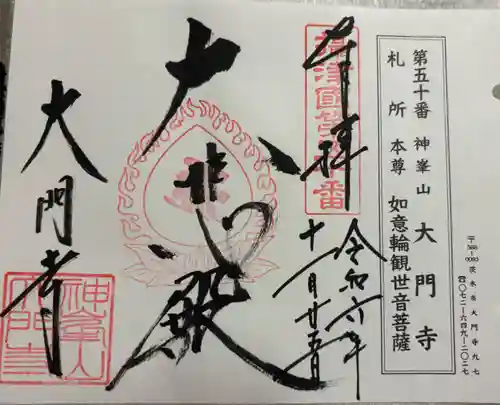 第五十番 神峯山 大門寺
札所本尊 如意輪観世音菩薩
〒568-0093 茨木市大門寺九七
☎〇七二-六四九-二〇二七
奉拝
令和六年
十一月廿五日
大悲殿
大門寺
神峯山
大門寺